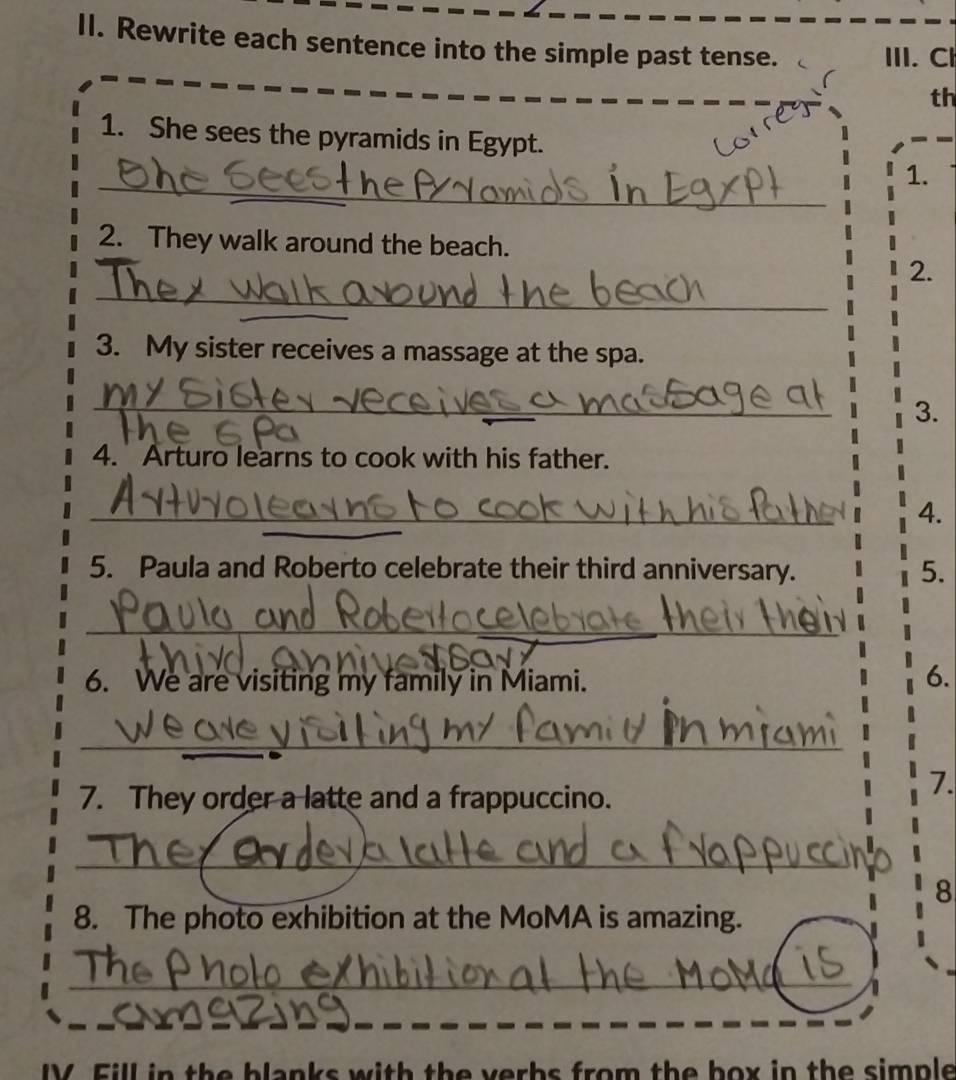 II. Rewrite each sentence into the simple past tense.
III. Ch
th
corregir
1. She sees the pyramids in Egypt.
She sees the Pyramids in Egypt
1.
2. They walk around the beach.
They walk around the beach
2.
3. My sister receives a massage at the spa.
my sister receives a massage at
the spa
3.
4. Arturo learns to cook with his father.
Arturo learns to cook with his father
4.
5. Paula and Roberto celebrate their third anniversary.
Paula and Roberto celebrate their their
third anniverssary
5.
6. We are visiting my family in Miami.
We are visiting my family in miami
6.
7. They order a latte and a frappuccino.
They order a latte and a frappuccino
7.
8. The photo exhibition at the MoMA is amazing.
The Photo exhibition at the MoMa is
amazing
8
IV. Fill in the blanks with the verbs from the box in the simple